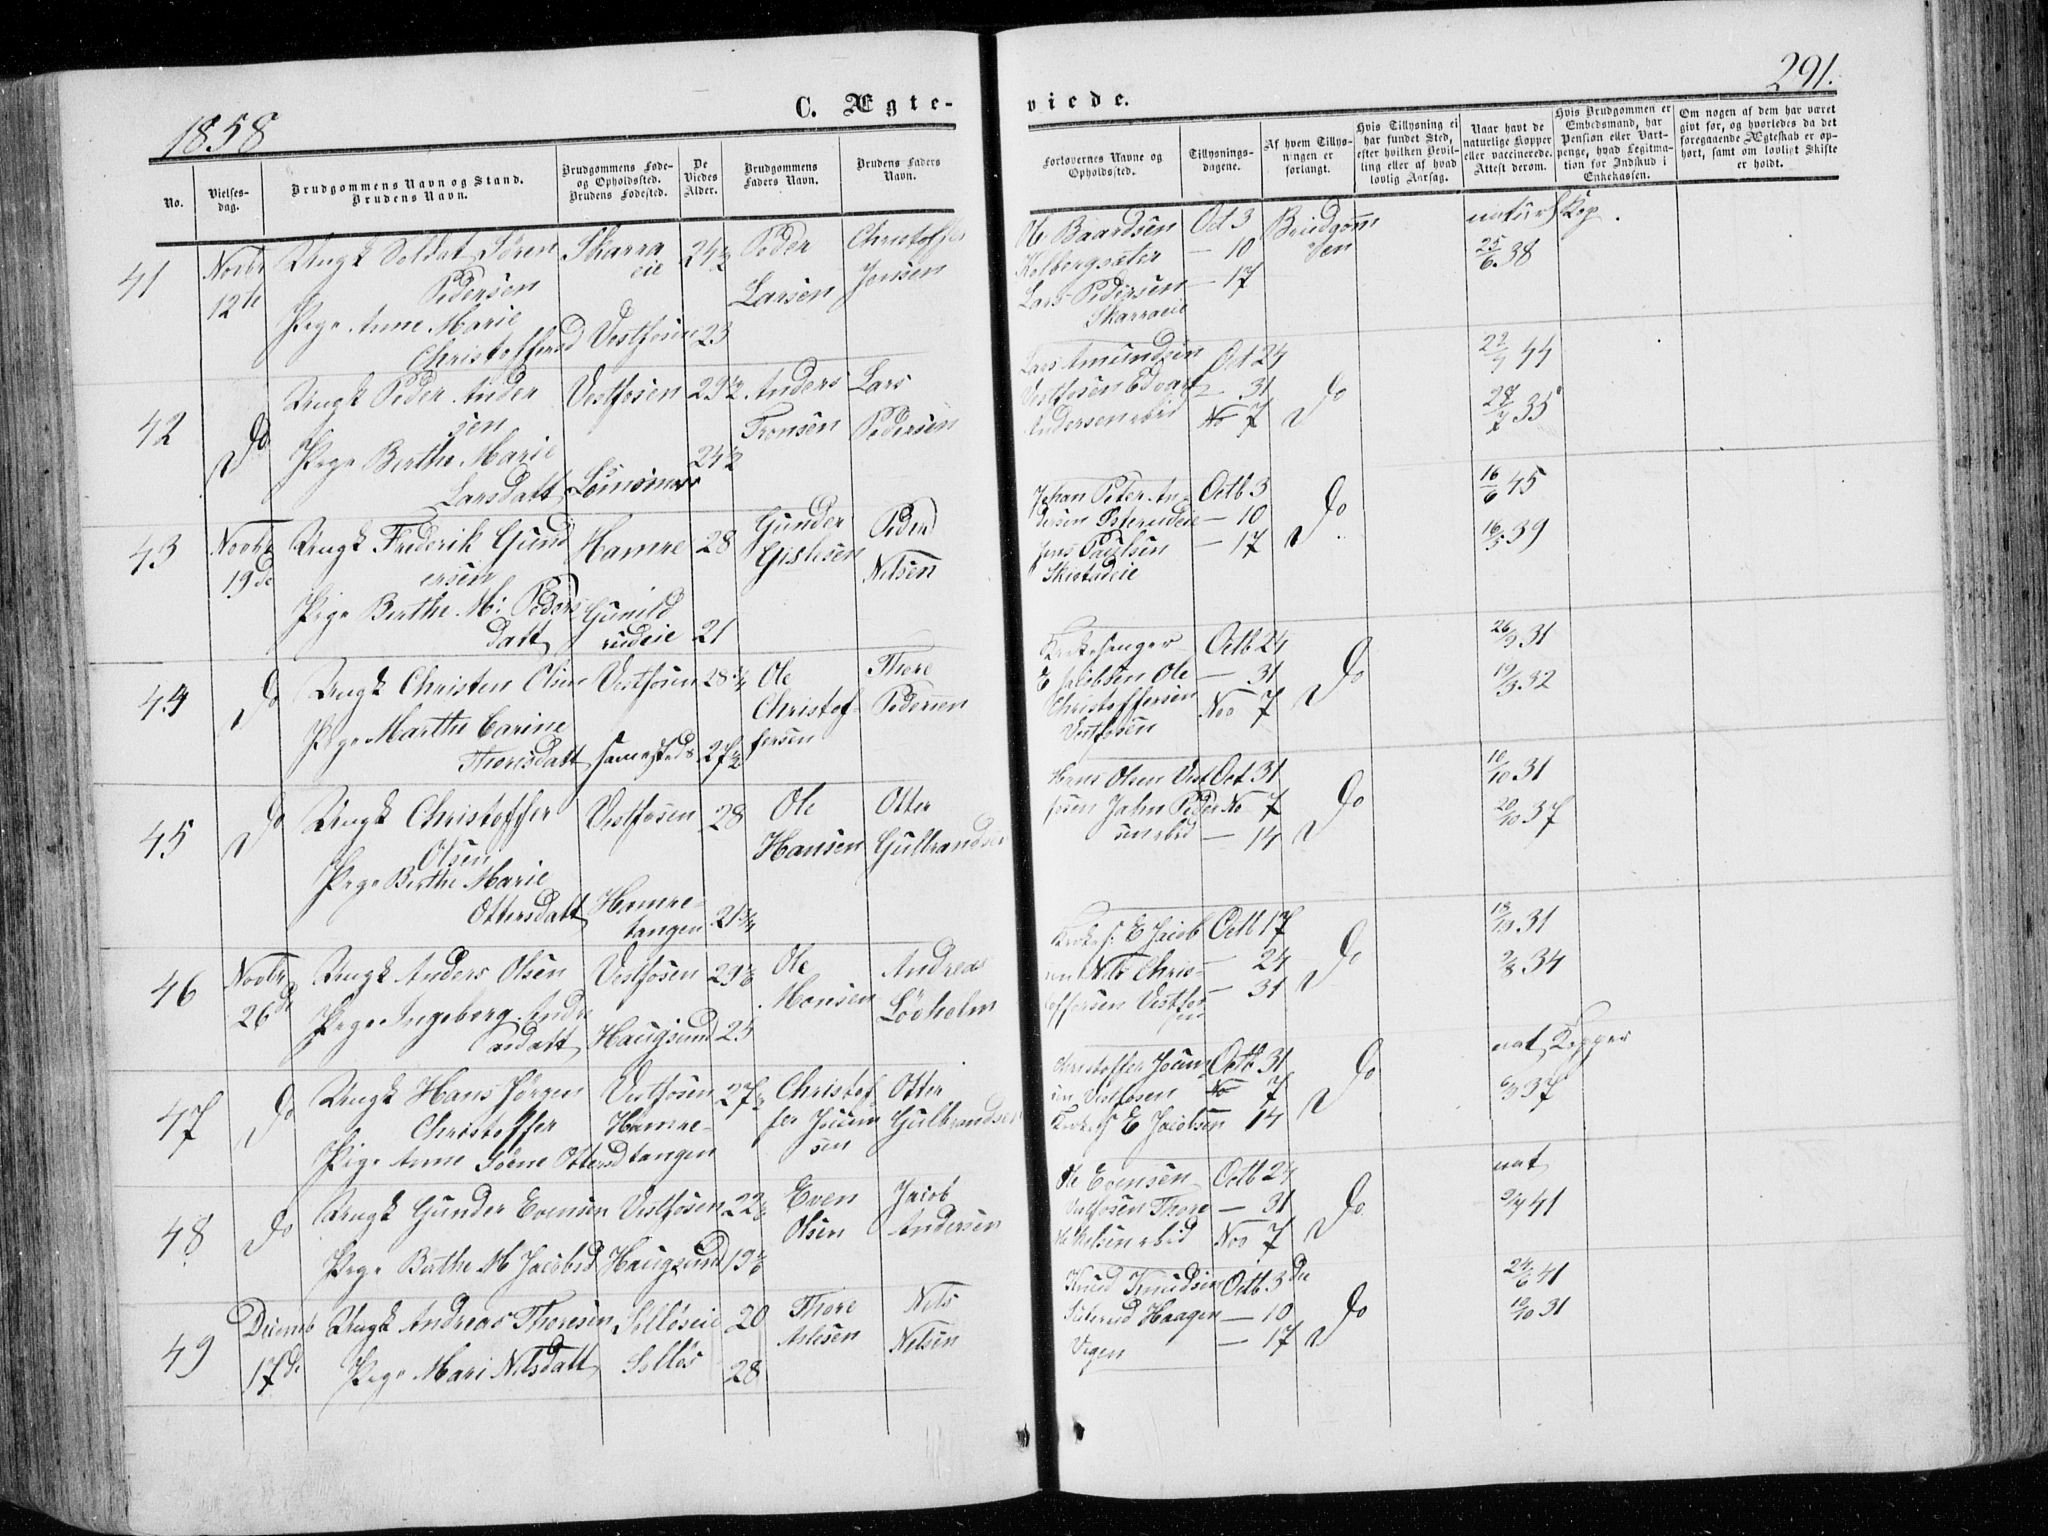 1858
C. Ægte-
viede.
291.
No.
Vielses-
dag.
Brudgommens Navn og Stand.
Brudens Navn.
Brudgommens Føde-
og Opholdssted.
Brudens Fødested.
De
Viedes
Alder.
Brudgommens
Faders Navn.
Brudens Faders
Navn.
Forlovernes Navne og
Opholdssted.
Tillysnings-
dagene.
Af hvem Tillys-
ningen er
forlangt.
Hvis Tillysning ei
har fundet Sted,
efter hvilken Bevil-
ling eller af hvad
lovlig Aarsag.
Naar havt de
naturlige Kopper
eller vaccinerede.
Attest derom.
Hvis Brudgommen er
Embedsmand, har
Pension eller Vart-
penge, hvad Legitma-
tion for Indskud i
Enkekassen.
Om nogen af dem har været
givt før, og hvorledes da det
foregaaende Ægteskab er op-
hørt, samt om lovligt Skifte
er holdt.
41
Novbr
12te
Ungk Soldat Sören
Pedersen
Pige Anne Marie
Christoffersd
Skarra
eie
Vestfosen
24½
23
Peder
Larsen
Christoffer
Jensen
Ole Baardsen
Kolbergsæter
Lars Pedersen
Skarraeie
Oct 3
— 10
— 17
Brudgom
men
natur Kop
25/6 38
42
Do
Ungk Peder Ander
sen
Pige Berthe Marie
Larsdatt
Vestfosen
29½
24½
Anders
Tronsen
Lars
Pedersen
Lars Amundsen
Vestfosen Edvart
Andersen ibid
Oct 24
— 31
No 7
Do
22/7 44
28/7 35
43
Novbr
19de
Ungk Frederik Gund
ersen
Pige Berthe M: Peders
datt
Hamre
Gunild
rudeie
28
21
Gunder
Gislesen
Peder
Nilsen
Johan Peter An-
dersen
Jens Paulsen
Octb 3
— 10
— 17
Do
16/6 45
16/5 39
44
Do
Ungk Christen Olsen
Pige Marthe Carine
Thoresdatt
Vestfosen
sammesteds
28¼
27½
Ole
Christof-
fersen
Thore
Pedersen
Kirkesanger
E Jacobsen Ole
Christoffersen
Vestfosen
Octb 24
— 31
Nov 7
Do
26/9 31
19/3 32
45
Do
Ungk Christoffer
Olsen
Pige Berthe Marie
Ottersdatt
Vestfosen
Hamre-
tangen
28
21¾
Ole
Hansen
Otter
Gulbrandsen
Hans Olsen Vest
fosen John Peder
sen ibid
Oct 31
No 7
— 14
Do
10/10 31
20/10 37
46
Novbr
26de
Ungk Anders Olsen
Pige Ingeborg Andre
asdatt
Vestfosen
Haugsund
29½
25
Ole
Monsen
Andreas
Lövholm
Kirkes. E Jacob
sen Nils Chris-
toffersen Vestfos
en
Octb 17
— 24
— 31
Do
18/9 31
9/8 34
47
Do
Ungk Hans Jörgen
Christoffer
Pige Anne Sörne Ottersd
Vestfosen
Hamre-
tangen
27½
Christof
fer Joram
sen
Otter
Gulbrandsen
Christoffer
sen Vestfosen
Kirkes E Jacobsen
Octb 31
No 7
14
Do
nat Kopper
6/9 37
48
Do
Ungk Gunder Evensen
Pige Berthe M Jacobsd
Vestfosen
Haugsund
22½
19½
Even
Olsen
Jacob
Andersen
Ole Evensen
Vestfosen Thore
ibid
Octb 24
— 31
Nov 7
Do
nat
2/7 41
49
Decemb
17de
Ungk Andreas Thoresen
Pige Mari Nilsdatt
Sollöseie
Sollös
20
28
Thore
Nils
Nilsen
Knud Knudsen
Haagen
Octb 3die
— 10
— 17
Do
24/6 41
19/10 31